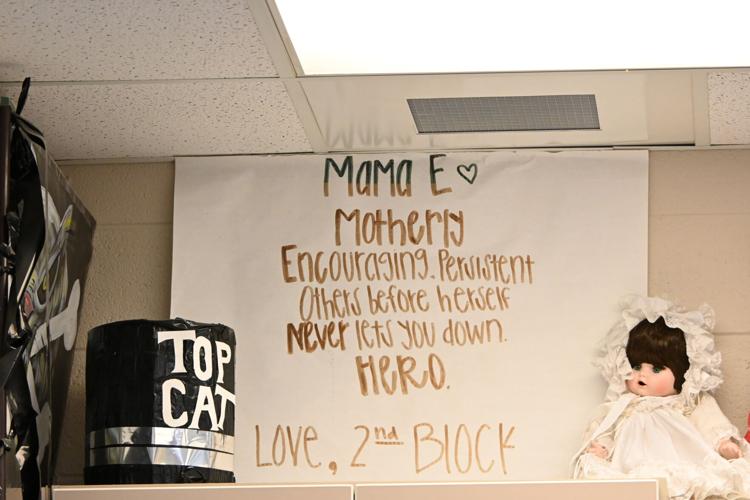 Mama E ♡
Motherly
Encouraging. Persistent
Others before herself
Never lets you down.
HERO.
LOVE, 2nd BLOCK
TOP
CAT